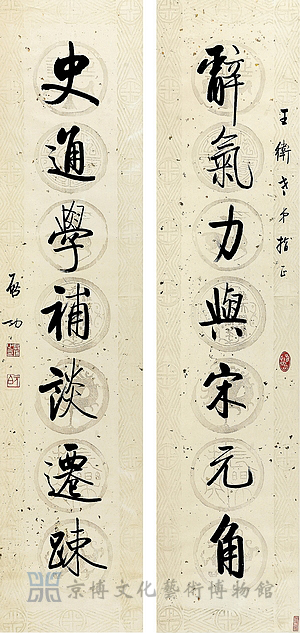 王衛老弟指正
辭氣力與宋元角
史通學補談遷疎
啟功
京博文化藝術博物館